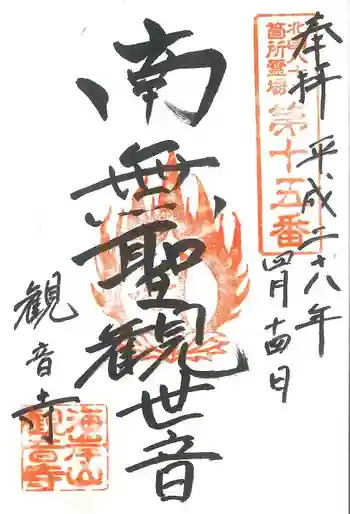 奉拝 平成二十八年
四月十四日
北日八十八
箇所霊場
第十五番
南無聖観世音
観音寺
海岸山
観音寺